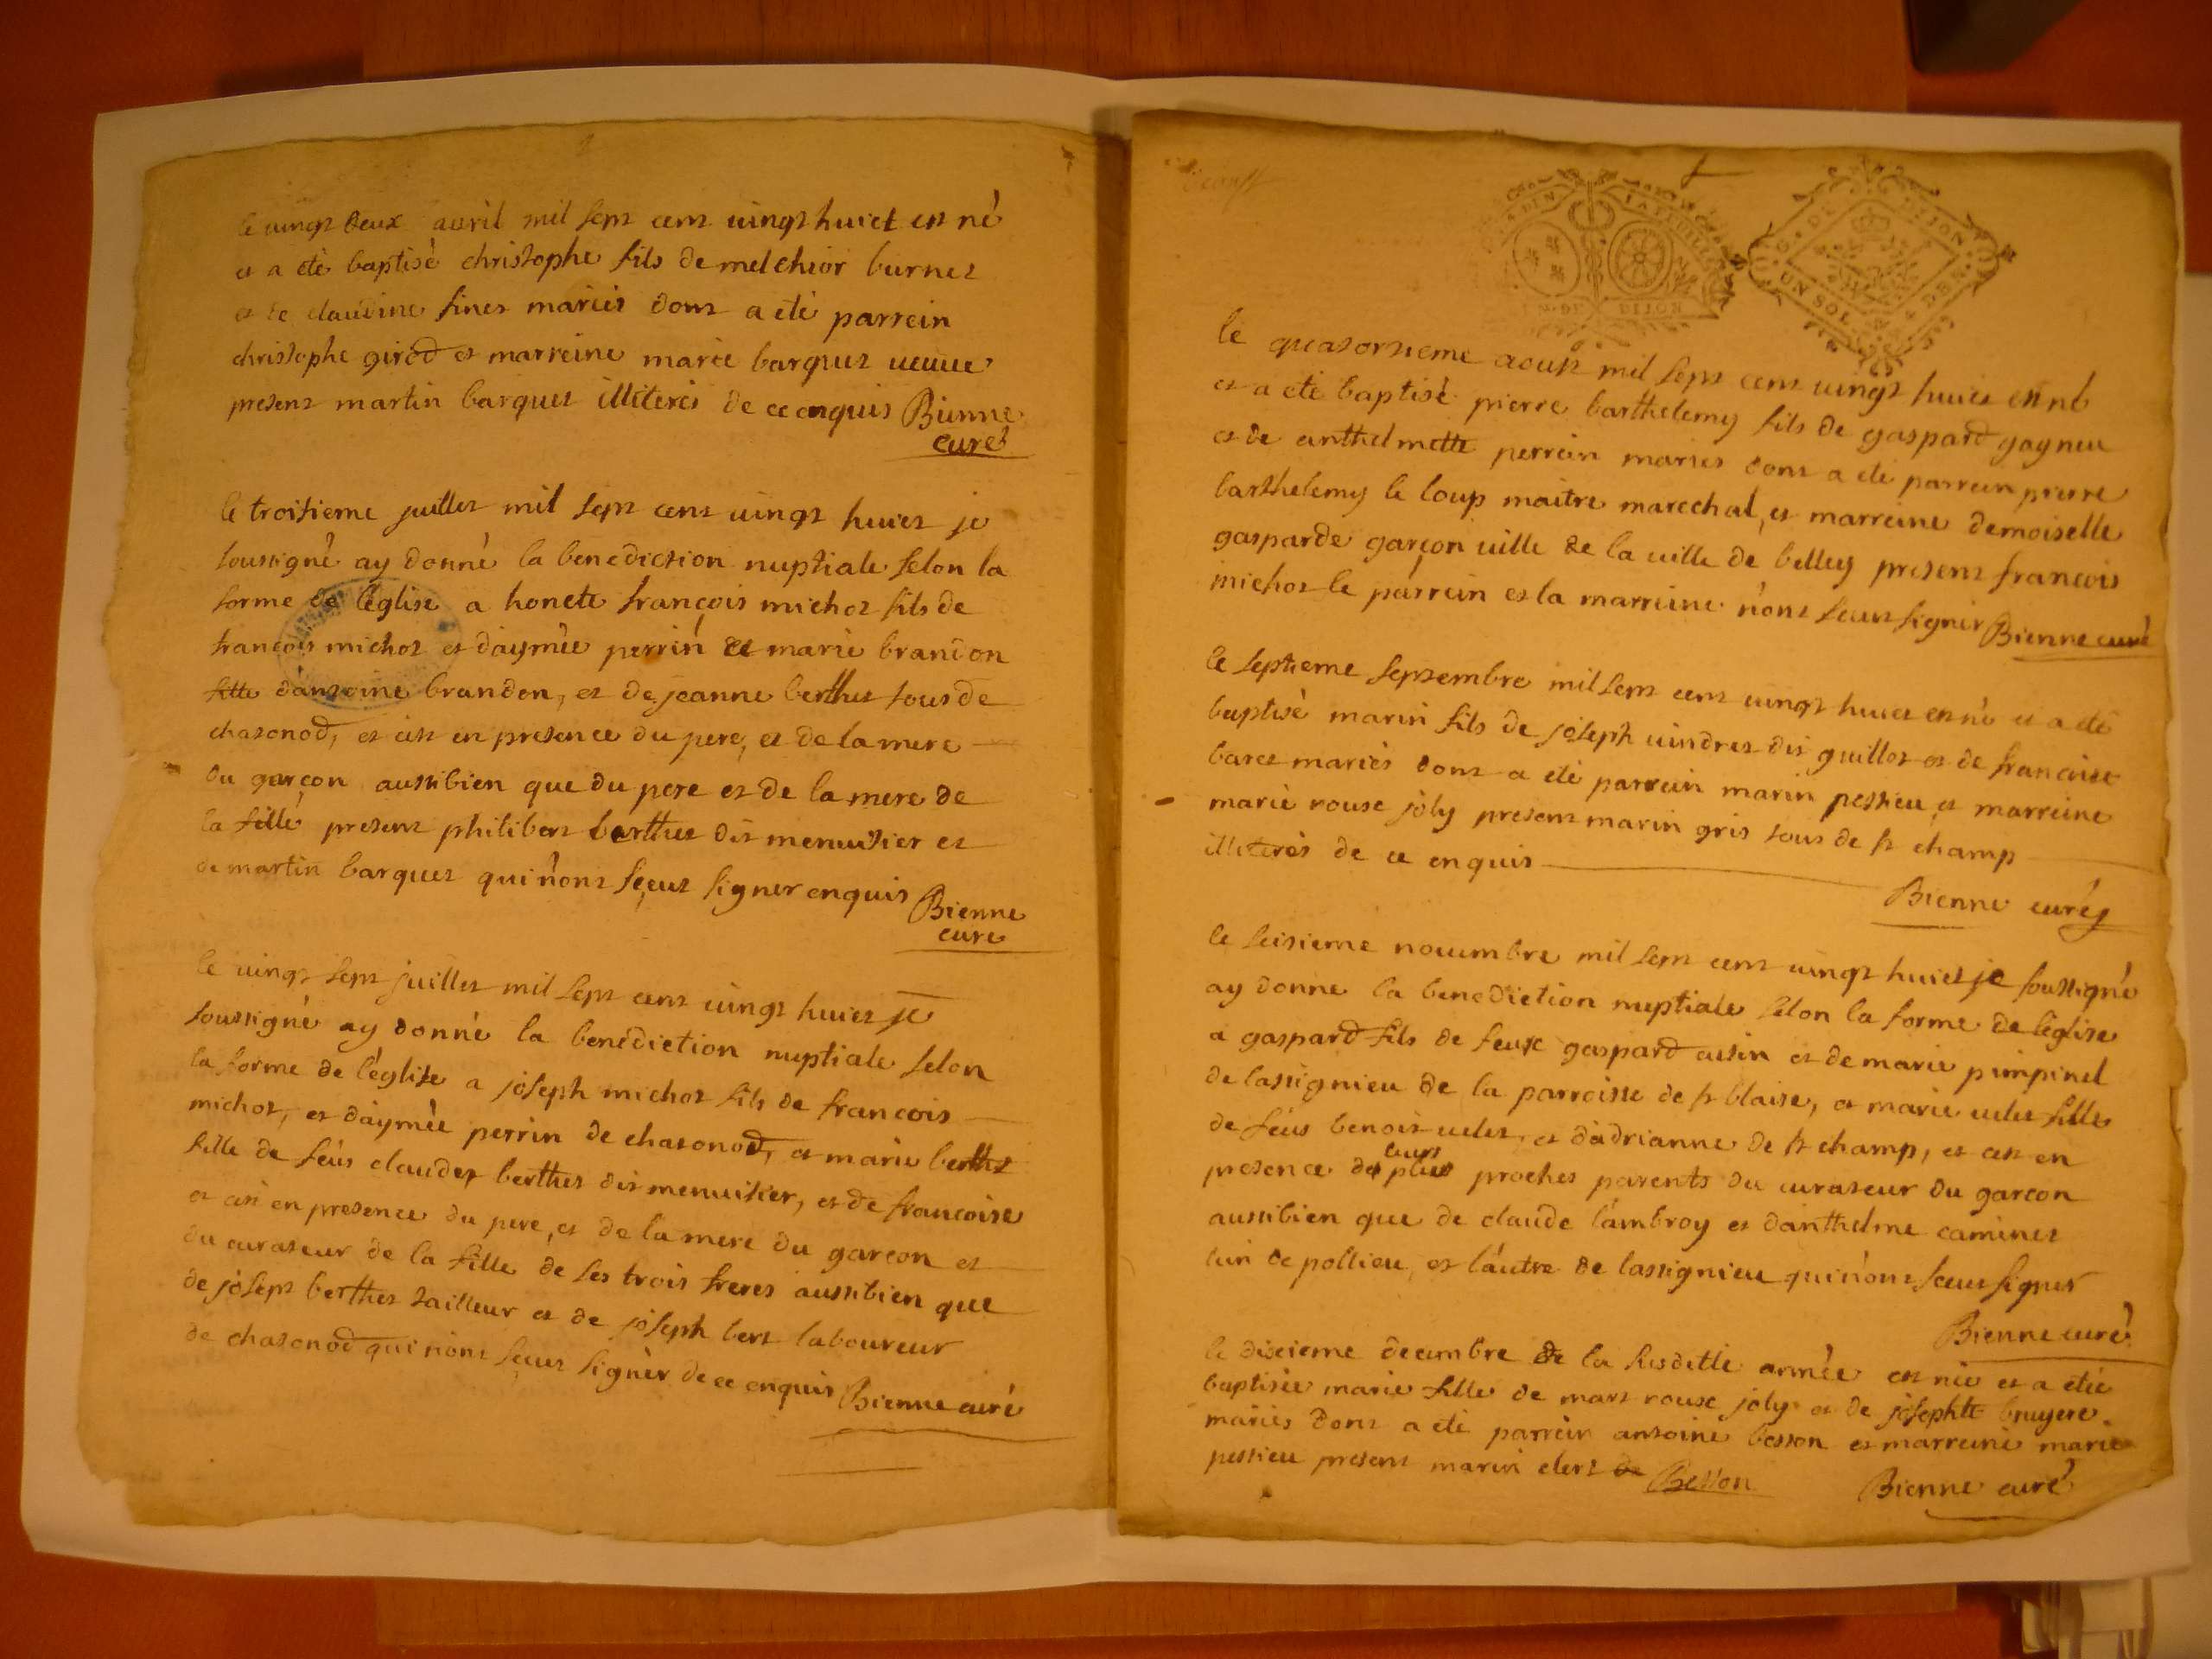 le vingt deux avril mil sept cent vingt huict est né
et a eté baptisé christophe fils de melchior burnet
et de claudine finet mariés dont a eté parrein
christophe girod et marreine marie barquet veuve
present martin barquet illiterés de ce enquis Bienne
curé
le troisieme juillet mil sept cent vingt huict je
soussigné ay donné la benediction nuptiale selon la
forme de l'église a honete françois michot fils de
françois michot et d'aymée perrin et marie brandon
fille d'antoine brandon, et de jeanne berthet tous de
chasonod, et c'est en presence du pere, et de la mere
du garçon aussibien que du pere et de la mere de
la fille present philibert berthet dit menuisier et
de martin barquet qui n'ont sçeut signer enquis Bienne
curé
le vingt sept juillet mil sept cent vingt huict je
soussigné ay donné la benédiction nuptiale selon
la forme de l'église a joseph michot fils de francois
michot, et d'aymée perrin de chasonod, et marie berthet
fille de feus claudes berthet dit menuisier, et de francoise
et c'est en presence du pere, et de la mere du garcon et
du curateur de la fille de ses trois freres aussibien que
de josept berthet tailleur et de joseph bert laboureur
de chasonod qui n'ont sçeut signer de ce enquis Bienne curé
G. DE DIJON
UN SOL
DIJON
le quatorsieme aoust mil sept cent vingt huict est né
et a eté baptisé pierre barthelemy fils de gaspard gagneu
et de anthelmette perrein mariés dont a eté parrein pierre
barthelemy le loup maitre marechal, et marreine demoiselle
gasparde garçon ville de la ville de belley present francois
michot le parrein et la marreine n'ont sceut signer Bienne curé
le septieme septembre mil sept cent vingt huict est né et a eté
baptisé marin fils de joseph vindret dit guillot et de francoise
baret mariés dont a eté parrein marin pessieu et marreine
marie rouse joly present marin gris tous de st champ
illiterés de ce enquis
Bienne curé
le seisieme novembre mil sept cent vingt huict je soussigné
ay donne la benediction nuptiale selon la forme de l'église
a gaspard fils de feux gaspard autin et de marie pimpinel
de lassignieu de la parroisse de st blaise, et marie velet fille
de féus benoit velet, et d'adrianne de st champ, et c'est en
presence de leurs plus proches parents du curateur du garcon
aussibien que de claude lambroy et d'anthelme caminet
l'un de pollieu, et l'autre de lassignieu qui n'ont sceut signer
Bienne curé
le dixieme decembre de la susditte année est née et a etée
baptisée marie fille de mart rouse joly et de josephte bruyere
mariés dont a eté parrein antoine besson et marreine marie
pessieu present marin clert Besson Bienne curé